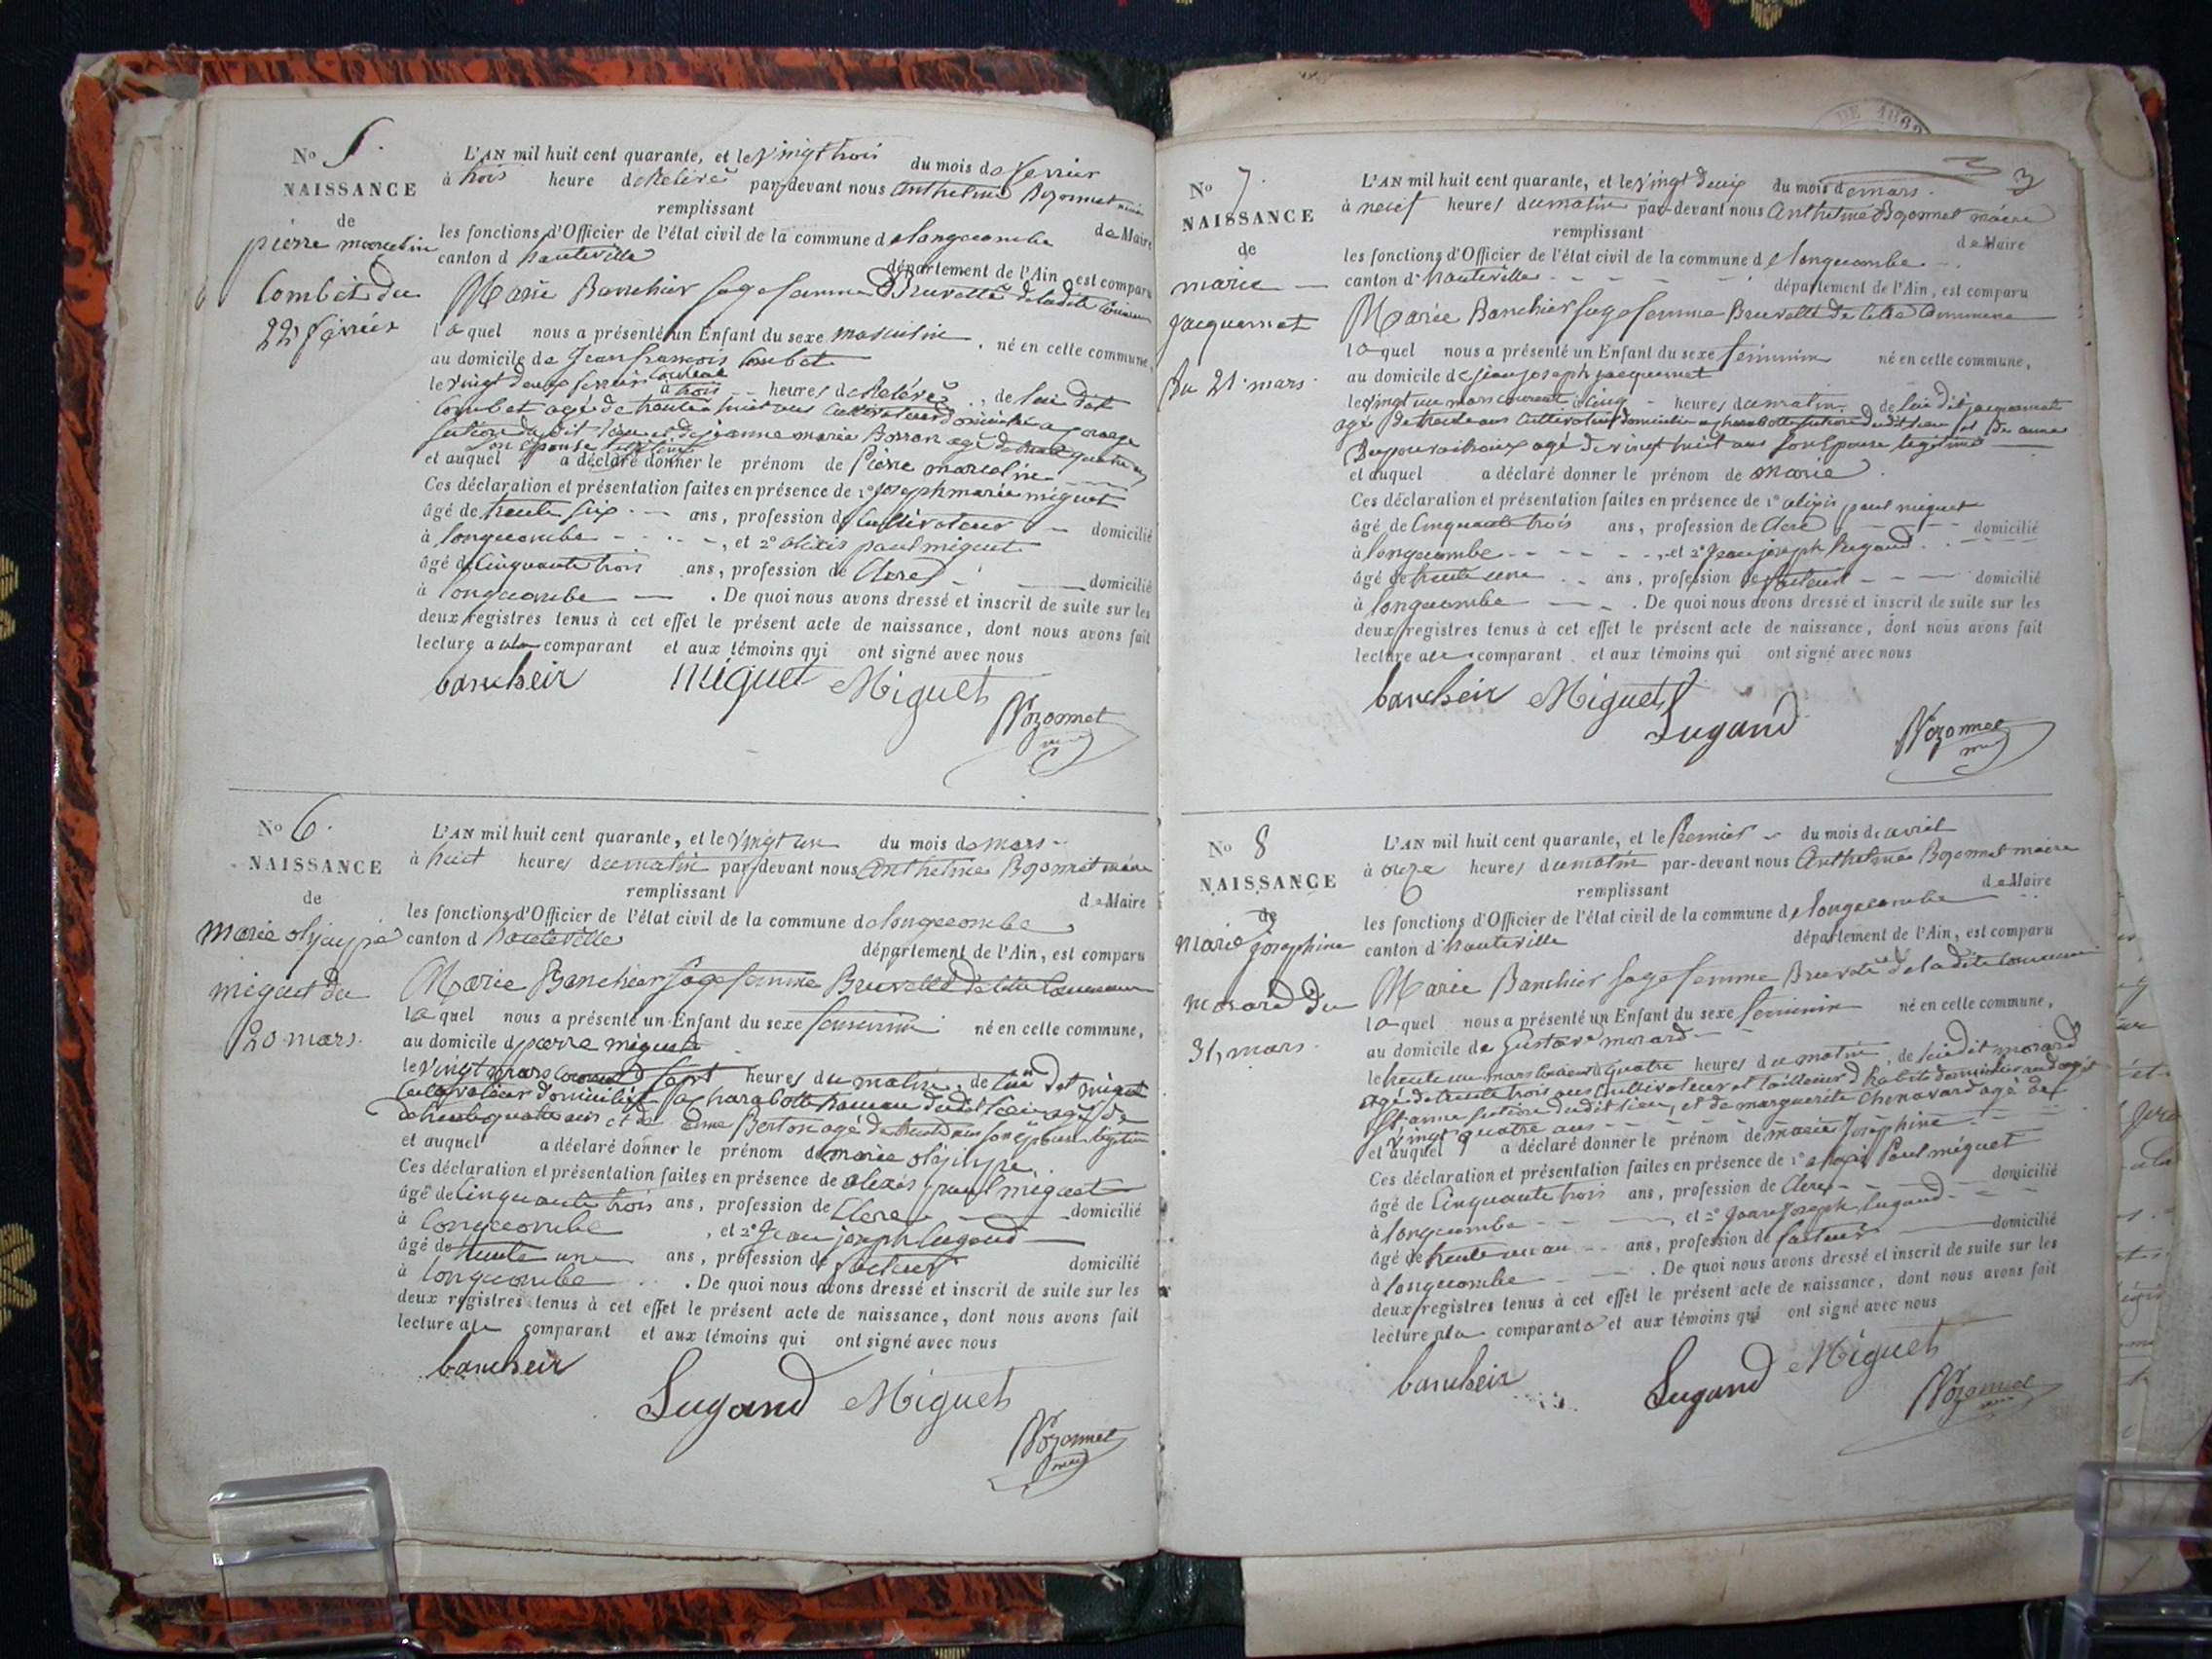 No 5.
NAISSANCE
de
pierre marcelin
Combet du
22 février
L'AN mil huit cent quarante, et le vingt trois du mois de fevrier
à trois heure de Relevé par-devant nous Anthelme Bozonnet maire
remplissant de Maire
les fonctions d'Officier de l'état civil de la commune de longecombe
canton d'hauteville département de l'Ain, est comparu
Marie Banchier sage femme Bruvetté de ladite Commune
laquel nous a présenté un Enfant du sexe masculin, né en cette commune,
au domicile de Jean françois Combet
le vingt deux fevrier courant à trois heures de Relévé, de lui dit
Combet agé de trente huit ans Cultivateur domicilié a
section dudit lieu et de jeanne marie agé de quatre
son épouse légitime
et auquel a déclaré donner le prénom de Pierre marceline
Ces déclaration et présentation faites en présence de 1° joseph marie miguet
âgé de trente six ans, profession de Cultivateur domicilié
à longecombe, et 2° alixis paul miguet
âgé de Cinquante trois ans, profession de Clerc domicilié
à longecombe. De quoi nous avons dressé et inscrit de suite sur les
deux registres tenus à cet effet le présent acte de naissance, dont nous avons fait
lecture a la comparant et aux témoins qui ont signé avec nous
bancheir Miguet Miguet
Bozonnet
No 6.
NAISSANCE
de
Marie olympe
miguet du
20 mars.
L'AN mil huit cent quarante, et le vingt un du mois de mars
à huit heures du matin par-devant nous Anthelme Bozonnet maire
remplissant de Maire
les fonctions d'Officier de l'état civil de la commune de longecombe
canton d'hauteville département de l'Ain, est comparu
Marie Banchier sage femme Bruvetté de ladite Commune
laquel nous a présenté un Enfant du sexe feminin né en cette commune,
au domicile de pierre miguet
le vingt mars courant à sept heures du matin, de lui dit miguet
Cultivateur domicilié a charabotte hameau dudit lieu agé de
trente quatre ans et de Berton agé de trente ans son épouse légitime
et auquel a déclaré donner le prénom de marie olympe.
Ces déclaration et présentation faites en présence de alixis paul miguet
âgé de Cinquante trois ans, profession de Clerc domicilié
à Longecombe, et 2° Jean joseph Lugand
âgé de trente une ans, profession de facteur domicilié
à longecombe. De quoi nous avons dressé et inscrit de suite sur les
deux registres tenus à cet effet le présent acte de naissance, dont nous avons fait
lecture a la comparant et aux témoins qui ont signé avec nous
bancheir
Lugand Miguet
Bozonnet
3
No 7.
NAISSANCE
de
marie
jacquemet
du 21 mars.
L'AN mil huit cent quarante, et le vingt deux du mois de mars.
à neuf heures du matin par-devant nous Anthelme Bozonnet maire
remplissant de Maire
les fonctions d'Officier de l'état civil de la commune de longecombe
canton d'hauteville département de l'Ain, est comparu
Marie Banchier sage femme Bruvetté de ladite Commune
laquel nous a présenté un Enfant du sexe feminin né en cette commune,
au domicile de jean joseph jacquemet
le vingt un mars courant à cinq heures du matin, de lui dit jacquemet
agé de trente ans Cultivateur domicilié a charabotte section dudit lieu et de
agé de vingt huit ans son Epouse legitime
et auquel a déclaré donner le prénom de marie.
Ces déclaration et présentation faites en présence de 1° alixis paul miguet
âgé de Cinquante trois ans, profession de Clerc domicilié
à longecombe, et 2° Jean joseph Lugand
âgé de trente une ans, profession de facteur domicilié
à longecombe. De quoi nous avons dressé et inscrit de suite sur les
deux registres tenus à cet effet le présent acte de naissance, dont nous avons fait
lecture a la comparant et aux témoins qui ont signé avec nous
bancheir Miguet
Lugand
Bozonnet
No 8
NAISSANCE
de
marie josephine
morard du
31, mars.
L'AN mil huit cent quarante, et le Premier du mois de avril
à onze heures du matin par-devant nous Anthelme Bozonnet maire
remplissant de Maire
les fonctions d'Officier de l'état civil de la commune de longecombe
canton d'hauteville département de l'Ain, est comparu
Marie Banchier sage femme Bruveté de ladite Commune
laquel nous a présenté un Enfant du sexe feminin né en cette commune,
au domicile de Gustave morard
le trente un mars à quatre heures du matin, de lui dit morard
agé de trente trois ans Cultivateur et tailleur d'habits domicilié
section dudit lieu, et de marguerite Chenavard agé de
vingt quatre ans
et auquel a déclaré donner le prénom de marie Josephine
Ces déclaration et présentation faites en présence de 1° alixis Paul miguet
âgé de Cinquante trois ans, profession de Clerc domicilié
à longecombe, et 2° Jean Joseph Lugand
âgé de trente un an ans, profession de facteur domicilié
à longecombe. De quoi nous avons dressé et inscrit de suite sur les
deux registres tenus à cet effet le présent acte de naissance, dont nous avons fait
lecture a la comparante et aux témoins qui ont signé avec nous
bancheir Lugand Miguet
Bozonnet